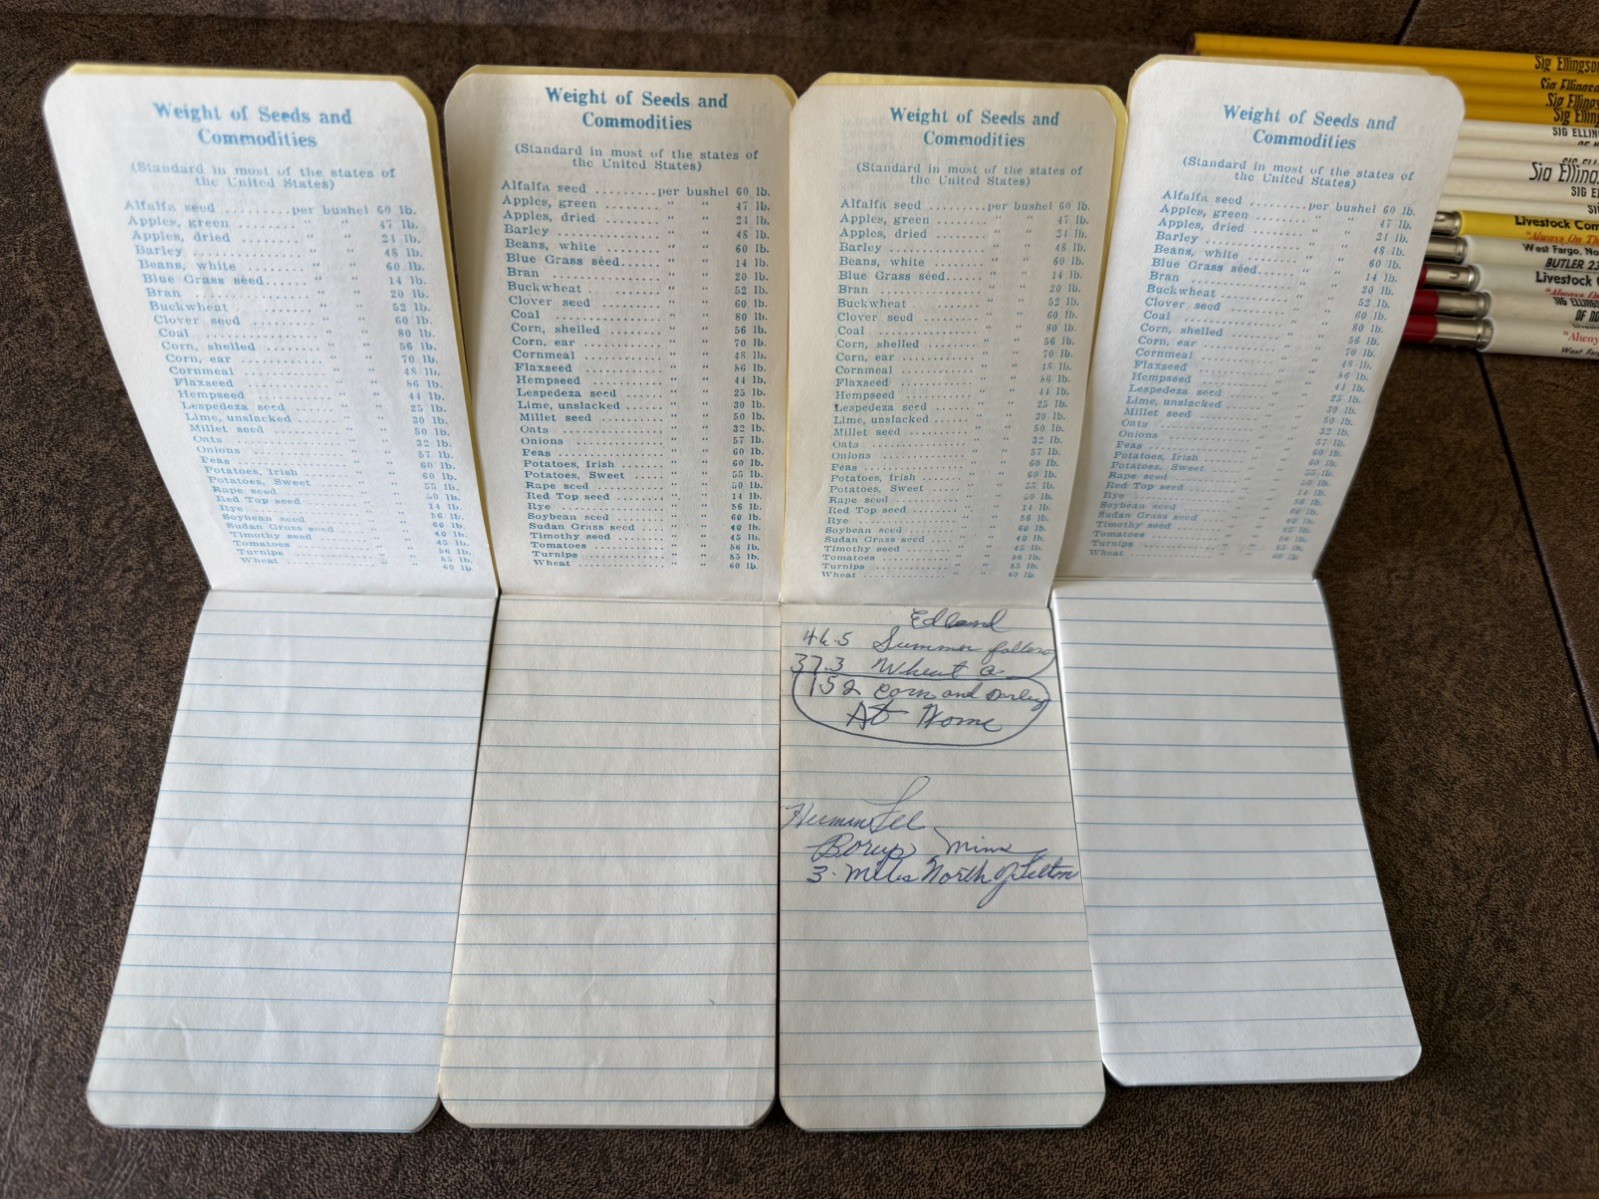 Weight of Seeds and
Commodities
(Standard in most of the states of
the United States)
Alfalfa seed ........per bushel 60 lb.
Apples, green ........ " " 47 lb.
Apples, dried ........ " " 24 lb.
Barley ........ " " 48 lb.
Beans, white ........ " " 60 lb.
Blue Grass seed...... " " 14 lb.
Bran ........ " " 20 lb.
Buckwheat ........ " " 52 lb.
Clover seed ........ " " 60 lb.
Coal ........ " " 80 lb.
Corn, shelled ........ " " 56 lb.
Corn, ear ........ " " 70 lb.
Cornmeal ........ " " 48 lb.
Flaxseed ........ " " 56 lb.
Hempseed ........ " " 44 lb.
Lespedeza seed ...... " " 25 lb.
Lime, unslacked ...... " " 30 lb.
Millet seed ........ " " 50 lb.
Oats ........ " " 32 lb.
Onions ........ " " 57 lb.
Peas ........ " " 60 lb.
Potatoes, Irish ....... " " 60 lb.
Potatoes, Sweet ...... " " 55 lb.
Rape seed ........ " " 50 lb.
Red Top seed ........ " " 14 lb.
Rye ........ " " 56 lb.
Soybean seed ........ " " 60 lb.
Sudan Grass seed ..... " " 40 lb.
Timothy seed ........ " " 45 lb.
Tomatoes ........ " " 56 lb.
Turnips ........ " " 55 lb.
Wheat ........ " " 60 lb.
Weight of Seeds and
Commodities
(Standard in most of the states of
the United States)
Alfalfa seed .........per bushel 60 lb.
Apples, green ........ " " 47 lb.
Apples, dried ........ " " 24 lb.
Barley ........ " " 48 lb.
Beans, white ........ " " 60 lb.
Blue Grass seed...... " " 14 lb.
Bran ........ " " 20 lb.
Buckwheat ........ " " 52 lb.
Clover seed ........ " " 60 lb.
Coal ........ " " 80 lb.
Corn, shelled ........ " " 56 lb.
Corn, ear ........ " " 70 lb.
Cornmeal ........ " " 48 lb.
Flaxseed ........ " " 56 lb.
Hempseed ........ " " 44 lb.
Lespedeza seed ...... " " 25 lb.
Lime, unslacked ...... " " 30 lb.
Millet seed ........ " " 50 lb.
Oats ........ " " 32 lb.
Onions ........ " " 57 lb.
Peas ........ " " 60 lb.
Potatoes, Irish ....... " " 60 lb.
Potatoes, Sweet ...... " " 55 lb.
Rape seed ........ " " 50 lb.
Red Top seed ........ " " 14 lb.
Rye ........ " " 56 lb.
Soybean seed ........ " " 60 lb.
Sudan Grass seed ..... " " 40 lb.
Timothy seed ........ " " 45 lb.
Tomatoes ........ " " 56 lb.
Turnips ........ " " 55 lb.
Wheat ........ " " 60 lb.
Weight of Seeds and
Commodities
(Standard in most of the states of
the United States)
Alfalfa seed ........per bushel 60 lb.
Apples, green ........ " " 47 lb.
Apples, dried ........ " " 24 lb.
Barley ........ " " 48 lb.
Beans, white ........ " " 60 lb.
Blue Grass seed...... " " 14 lb.
Bran ........ " " 20 lb.
Buckwheat ........ " " 52 lb.
Clover seed ........ " " 60 lb.
Coal ........ " " 80 lb.
Corn, shelled ........ " " 56 lb.
Corn, ear ........ " " 70 lb.
Cornmeal ........ " " 48 lb.
Flaxseed ........ " " 56 lb.
Hempseed ........ " " 44 lb.
Lespedeza seed ...... " " 25 lb.
Lime, unslacked ...... " " 30 lb.
Millet seed ........ " " 50 lb.
Oats ........ " " 32 lb.
Onions ........ " " 57 lb.
Peas ........ " " 60 lb.
Potatoes, Irish ....... " " 60 lb.
Potatoes, Sweet ...... " " 55 lb.
Rape seed ........ " " 50 lb.
Red Top seed ........ " " 14 lb.
Rye ........ " " 56 lb.
Soybean seed ........ " " 60 lb.
Sudan Grass seed ..... " " 40 lb.
Timothy seed ........ " " 45 lb.
Tomatoes ........ " " 56 lb.
Turnips ........ " " 55 lb.
Wheat ........ " " 60 lb.
46.5 Summer fallow
37.3 Wheat
152 Corn and
At Home
Herman Lee
Borup Minn
3. Miles North of Felton
Weight of Seeds and
Commodities
(Standard in most of the states of
the United States)
Alfalfa seed ........per bushel 60 lb.
Apples, green ........ " " 47 lb.
Apples, dried ........ " " 24 lb.
Barley ........ " " 48 lb.
Beans, white ........ " " 60 lb.
Blue Grass seed...... " " 14 lb.
Bran ........ " " 20 lb.
Buckwheat ........ " " 52 lb.
Clover seed ........ " " 60 lb.
Coal ........ " " 80 lb.
Corn, shelled ........ " " 56 lb.
Corn, ear ........ " " 70 lb.
Cornmeal ........ " " 48 lb.
Flaxseed ........ " " 56 lb.
Hempseed ........ " " 44 lb.
Lespedeza seed ...... " " 25 lb.
Lime, unslacked ...... " " 30 lb.
Millet seed ........ " " 50 lb.
Oats ........ " " 32 lb.
Onions ........ " " 57 lb.
Peas ........ " " 60 lb.
Potatoes, Irish ....... " " 60 lb.
Potatoes, Sweet ...... " " 55 lb.
Rape seed ........ " " 50 lb.
Red Top seed ........ " " 14 lb.
Rye ........ " " 56 lb.
Soybean seed ........ " " 60 lb.
Sudan Grass seed ..... " " 40 lb.
Timothy seed ........ " " 45 lb.
Tomatoes ........ " " 56 lb.
Turnips ........ " " 55 lb.
Wheat ........ " " 60 lb.
Sig Ellingso
Sig Ellings
Sig Elling
SIG ELLIN
Sig Elling
SIG E
Livestock Com
"Always On Th
West Fargo, No
BUTLER 23
Livestock
SIG ELLING
OF NO
"Always
West Far